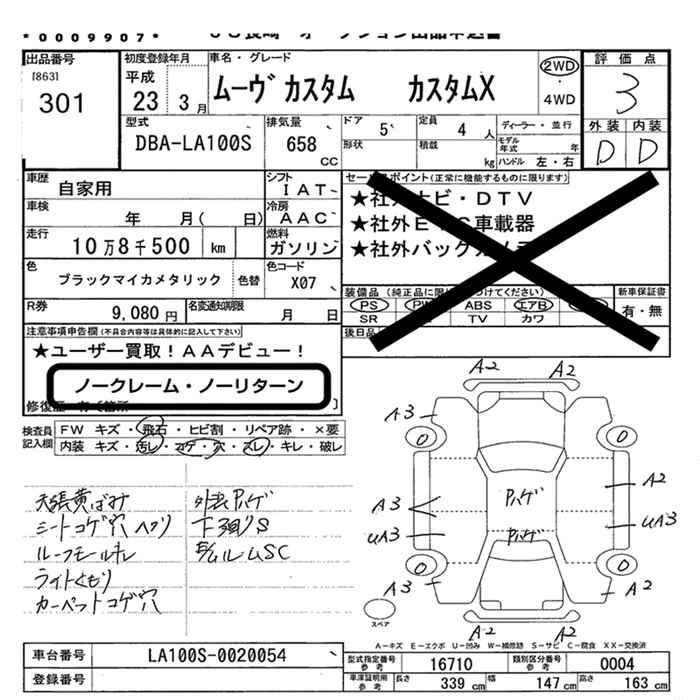 *0009907*
JU長崎 オークション出品申込書
出品番号
[863]
301
初度登録年月
平成
23 3月
車名・グレード
ムーヴカスタム カスタムX
2WD
・
4WD
評価点
3
外装 内装
D D
型式
DBA-LA100S
排気量
658
CC
ドア
5
定員
4 人
形状
積載
kg
ディーラー・並行
モデル年式 年
ハンドル 左・右
車歴
自家用
シフト
IAT
車検
年 月( 日)
冷房
AAC
走行
10万8千500 km
燃料
ガソリン
色
ブラックマイカメタリック
色替
色コード
X07
R券
9,080円
名変通知期限
月 日
セールスポイント(正常に機能するものに限ります)
★社外ナビ・DTV
★社外ETC車載器
★社外バックカメラ
装備品(純正品に限り つけてください)
PS PW ABS エアB
SR TV カワ
新車保証書
有・無
後日品
注意事項申告欄(不具合内容等は具体的に記入して下さい)
★ユーザー買取!AAデビュー!
ノークレーム・ノーリターン
修復歴 有〔箇所 〕
検査員記入欄
FW キズ・飛石・ヒビ割・リペア跡・×要
内装 キズ・汚レ・コゲ・穴・スレ・キレ・破レ
天張黄ばみ
シートコゲ穴ヘタリ
ルーフモールキレ
ライトくもり
カーペットコゲ穴
外装ハゲ
下廻りS
A2 A2
A3
0 0
Pハゲ
A3
UA3
A2
UA3
Pハゲ
0 0
A3
A2
A2 A2
スペア
A-キズ E-エクボ U-凹み W-補修跡 S-サビ C-腐食 XX-交換済
車台番号
LA100S-0020054
登録番号
型式指定番号 参考
16710
類別区分番号 参考
0004
車庫証明用 参考
長さ 339 cm
幅 147 cm
高さ 163 cm